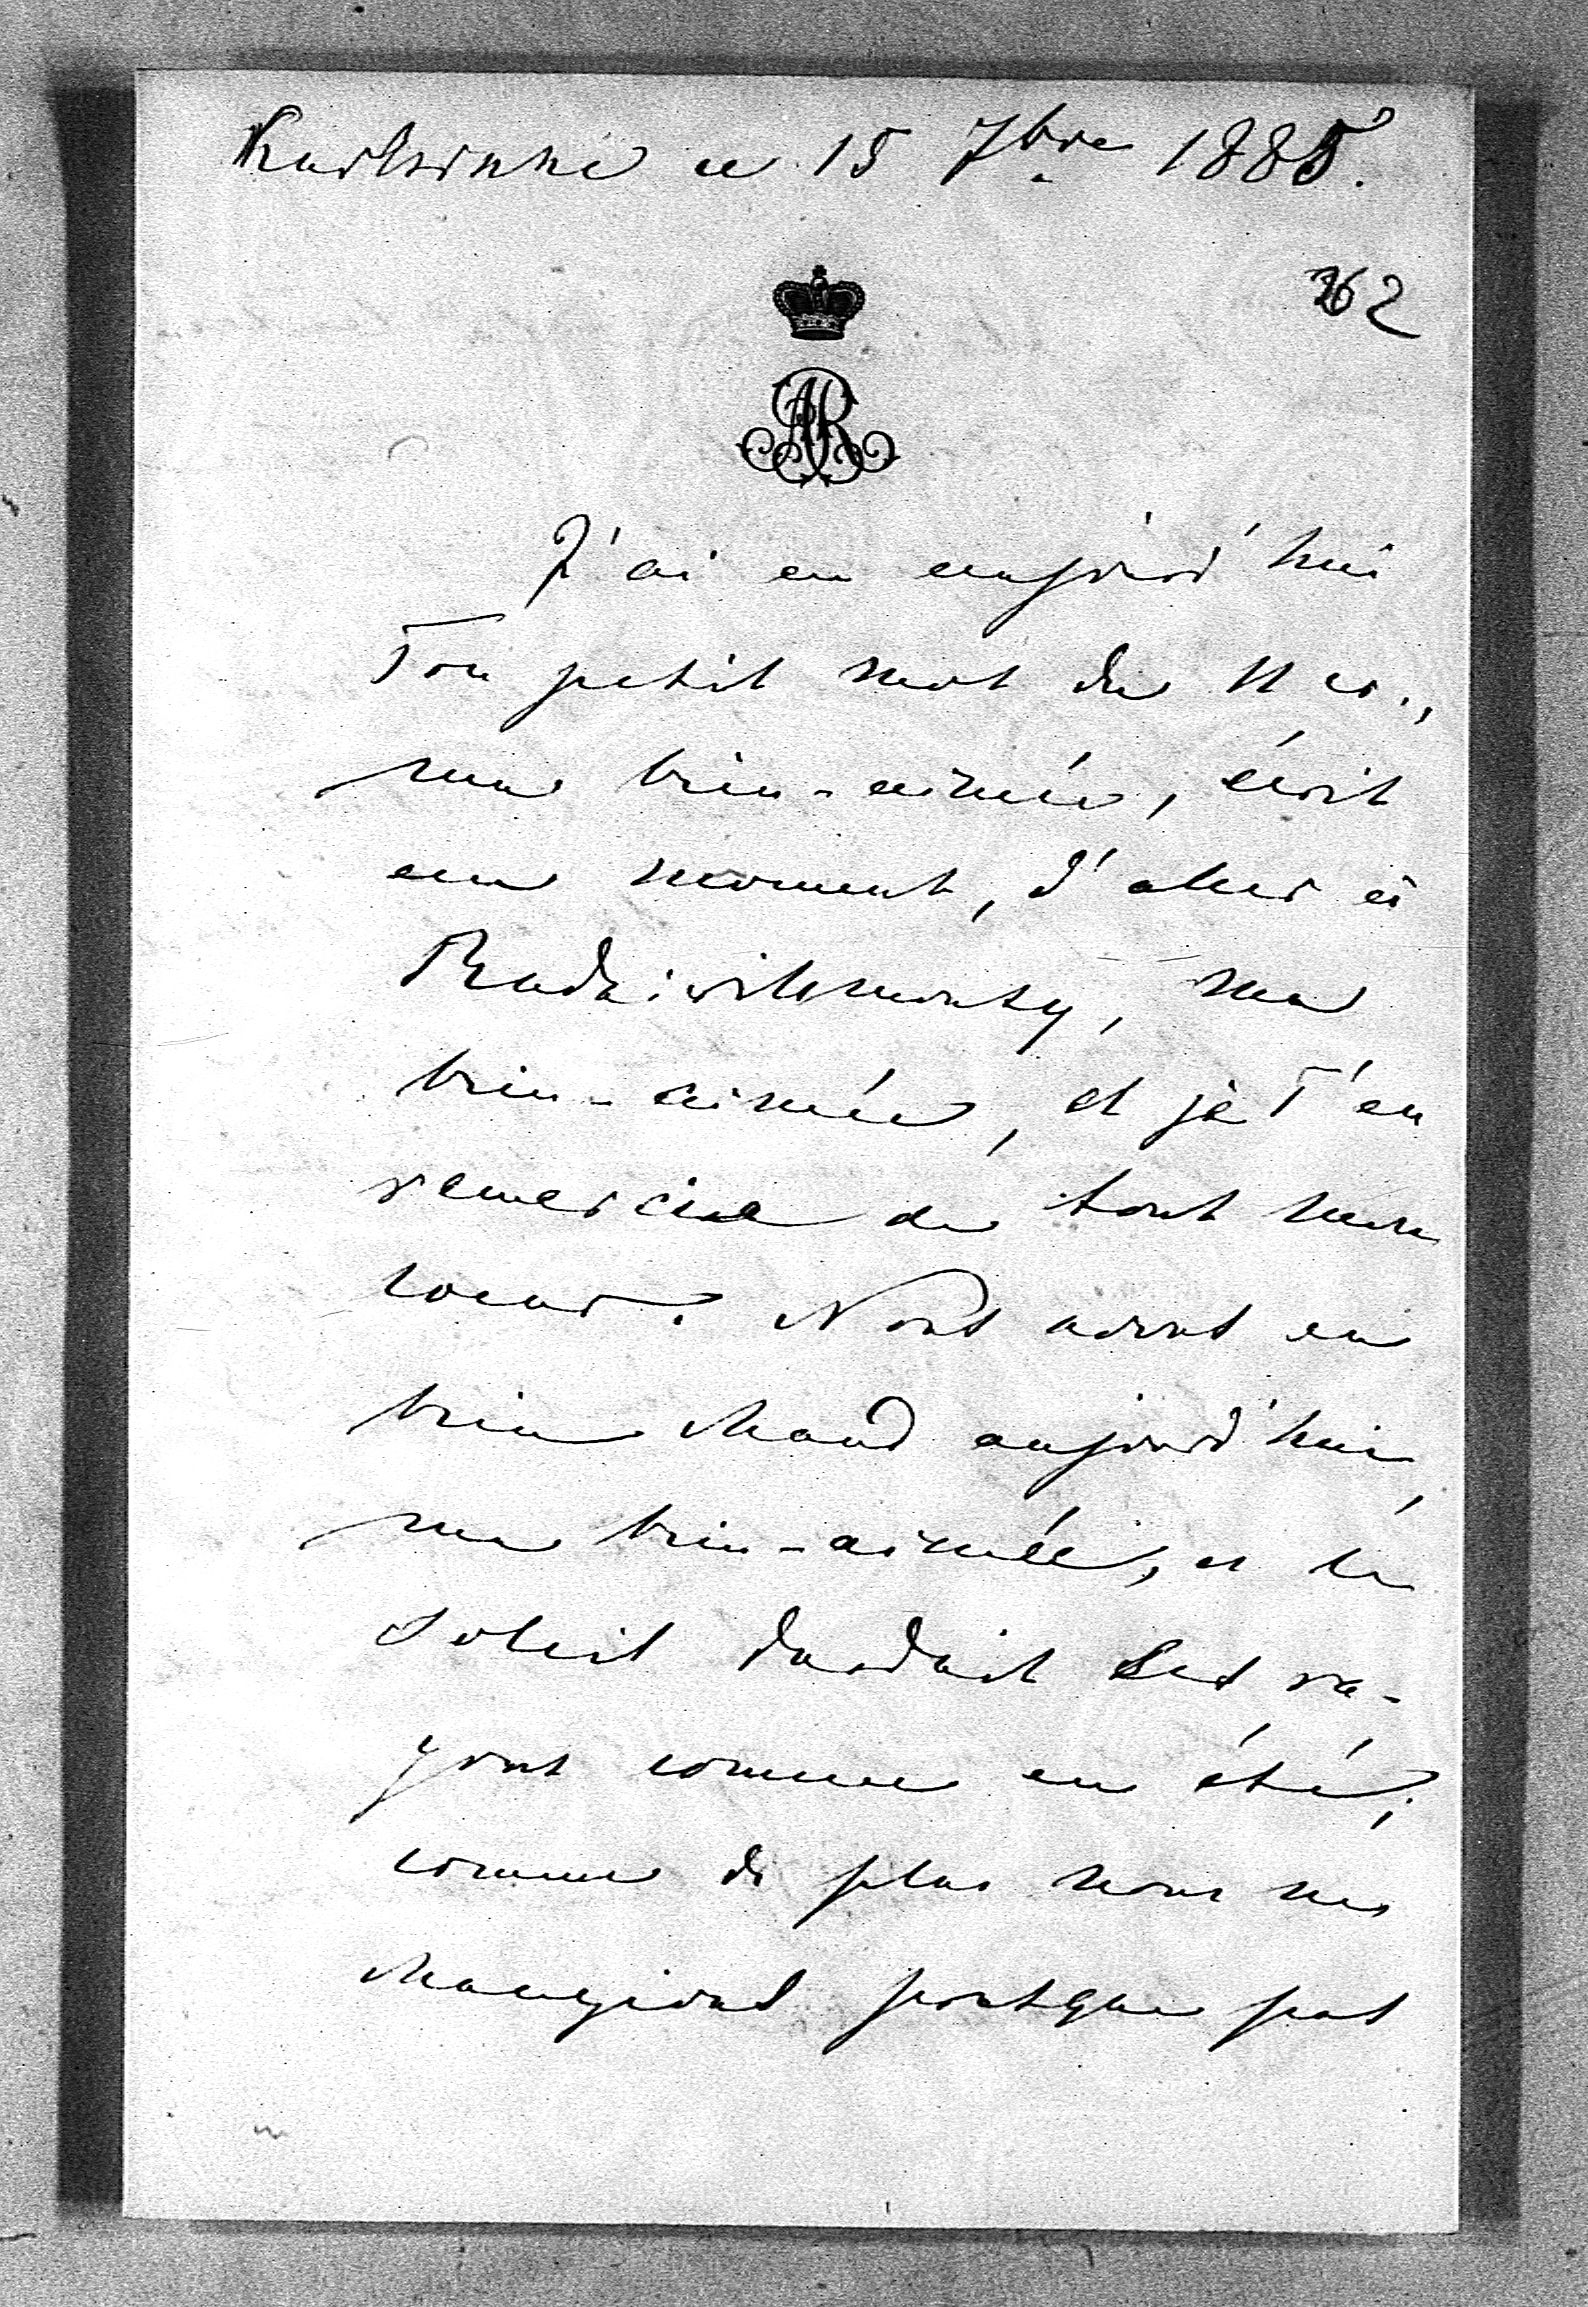 Karlsruhe ce 15 7bre 1885.
262
AR
J'ai eu aujourd'hui
Ton petit mot du 11 cr.,
ma bien-aimée, écrit
au moment, d'aller à
Radziwillmonty, ma
bien-aimée, et je T'en
remercie de tout mon
coeur. Nous avons eu
bien chaud aujourd'hui,
ma bien-aimée, et le
soleil dardait ses ra-
yons comme en été;
comme de plus nous ne
mangions presque pas